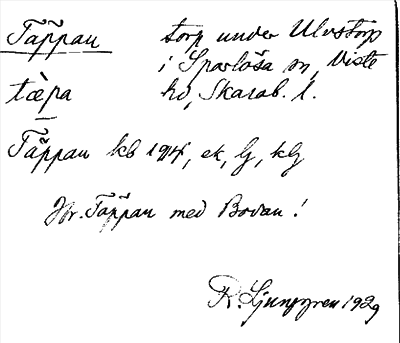 Täppan torp under Ulvstorp
i Sparlösa sn, Viste
tæ̀pa hd, Skarab. l.
Täppan kb 1914, ek, lj, klj
Jfr. Täppan med Bovan!
R. Ljunggren 1929